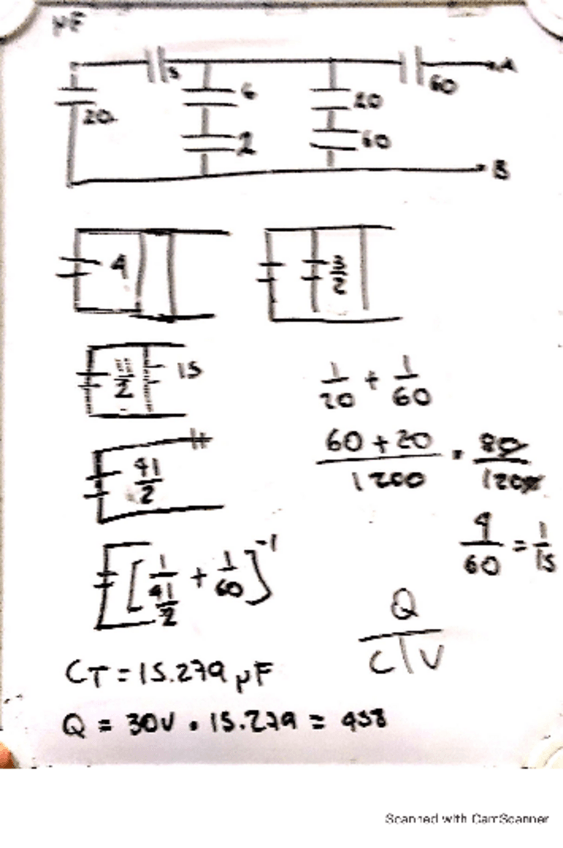 μF
5
A
6
20
60
20
2
60
B
4
3/2
11/2
15
1/20 + 1/60
41/2
60 + 20 / 1200 = 80 / 1200
4/60 = 1/15
[1/(41/2) + 1/60]⁻¹
Q
C | V
CT = 15.279 μF
Q = 30V · 15.279 = 458
Scanned with CamScanner